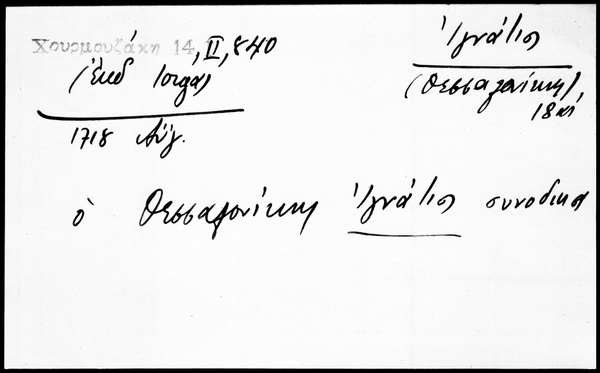 Χουρμουζάκη 14, II, 840
(Ἐκδ Ἰοργα)
1718 Αὔγ.
Ἰγνάτιος
(Θεσσαλονίκης),
18 αἰ
ὁ Θεσσαλονίκης Ἰγνάτιος συνοδικο